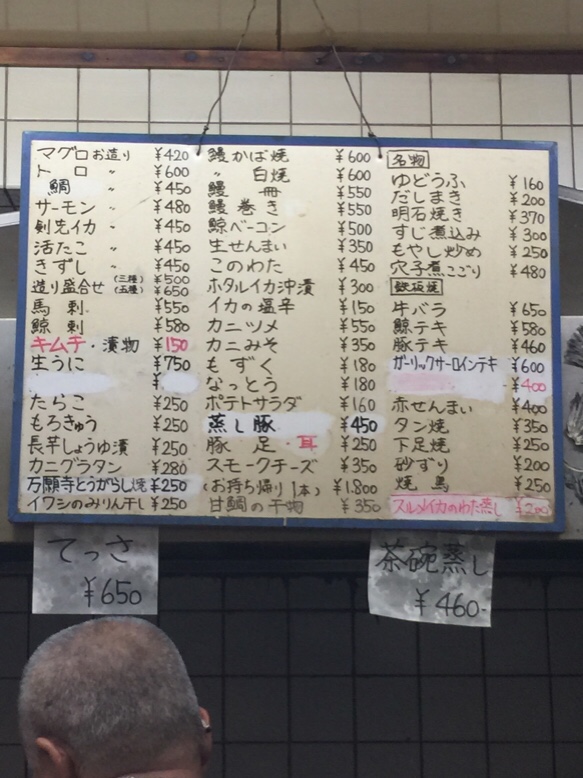 マグロお造り ¥420
トロ 〃 ¥600
鯛 〃 ¥450
サーモン 〃 ¥480
剣先イカ 〃 ¥450
活たこ 〃 ¥450
きずし 〃 ¥450
造り盛合せ (三種) ¥500
(五種) ¥650
馬刺 ¥550
鯨刺 ¥580
キムチ・漬物 ¥150
生うに ¥750
¥
たらこ ¥250
もろきゅう ¥250
長芋しょうゆ漬 ¥250
カニグラタン ¥280
万願寺とうがらし焼 ¥250
イワシのみりん干し ¥250
鰻かば焼 ¥600
〃 白焼 ¥600
鰻 ¥550
鰻巻き ¥550
鯨ベーコン ¥500
生せんまい ¥350
このわた ¥450
ホタルイカ沖漬 ¥300
イカの塩辛 ¥150
カニツメ ¥550
カニみそ ¥350
もずく ¥180
なっとう ¥180
ポテトサラダ ¥160
蒸し豚 ¥450
豚足・耳 ¥250
スモークチーズ ¥350
(お持ち帰り1本) ¥1.800
甘鯛の干物 ¥350
名物
ゆどうふ ¥160
だしまき ¥200
明石焼き ¥370
すじ煮込み ¥300
もやし炒め ¥250
穴子煮こごり ¥480
鉄板焼
牛バラ ¥650
鯨テキ ¥580
豚テキ ¥460
ガーリックサーロインテキ ¥600
¥400
赤せんまい ¥400
タン焼 ¥350
下足焼 ¥250
砂ずり ¥200
焼鳥 ¥250
スルメイカのわた蒸し ¥200
てっさ
¥650
茶碗蒸し
¥460-